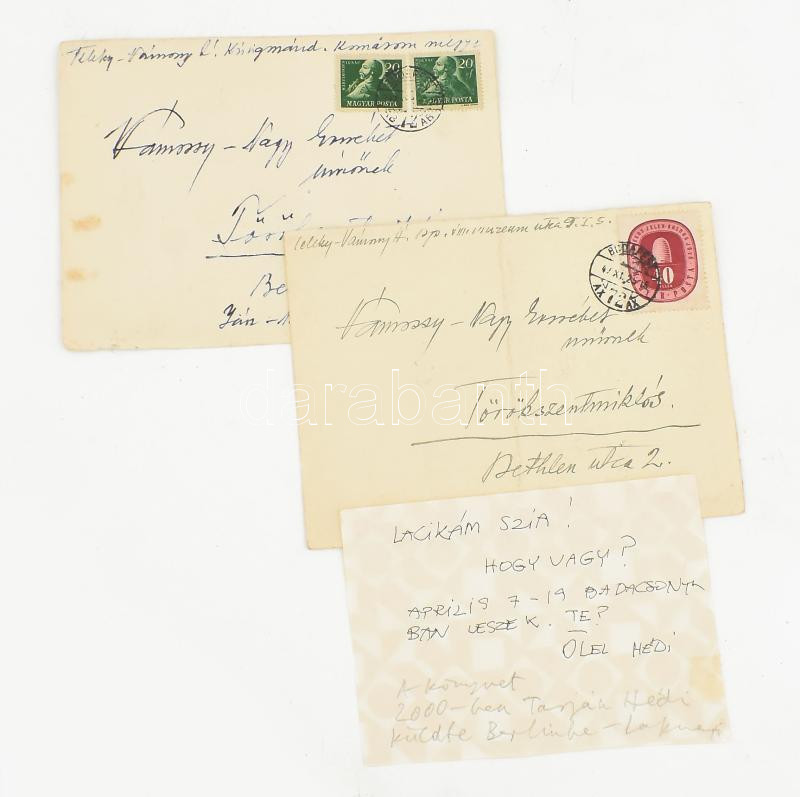 Teleky-Vámossy Kisigmánd. Komárom megye
20 20
MAGYAR POSTA MAGYAR POSTA
72
Vámossy-Nagy Erzsébet
úrnőnek
Török
Be
Ján-
Teleky-Vámossy Bp. VIII. Múzeum utca I. 5.
BUDAPEST
72
40
POSTA
Vámossy-Nagy Erzsébet
úrnőnek
darabanth
Törökszentmiklós.
Bethlen utca 2.
LACIKÁM SZIA!
HOGY VAGY?
APRILIS 7-19 BADACSONYBAN
LESZEK. TE?
ÖLEL HÉDI
A könyvet
2000-ben Tarján Hédi
küldte Berlinbe-